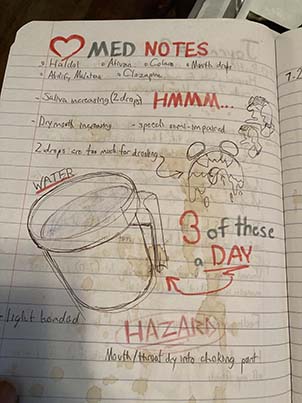 MED NOTES
Haldol Ativan Colace Mouth drops
Abilify Maintena Clozapine
- Saliva increasing (2 drops) HMMM...
- Dry mouth increasing - speech semi-impaired
2 drops are too much for drooling
WATER
3 of these
a DAY
- light headed
HAZARD
Mouth/throat dry into choking point
7.2